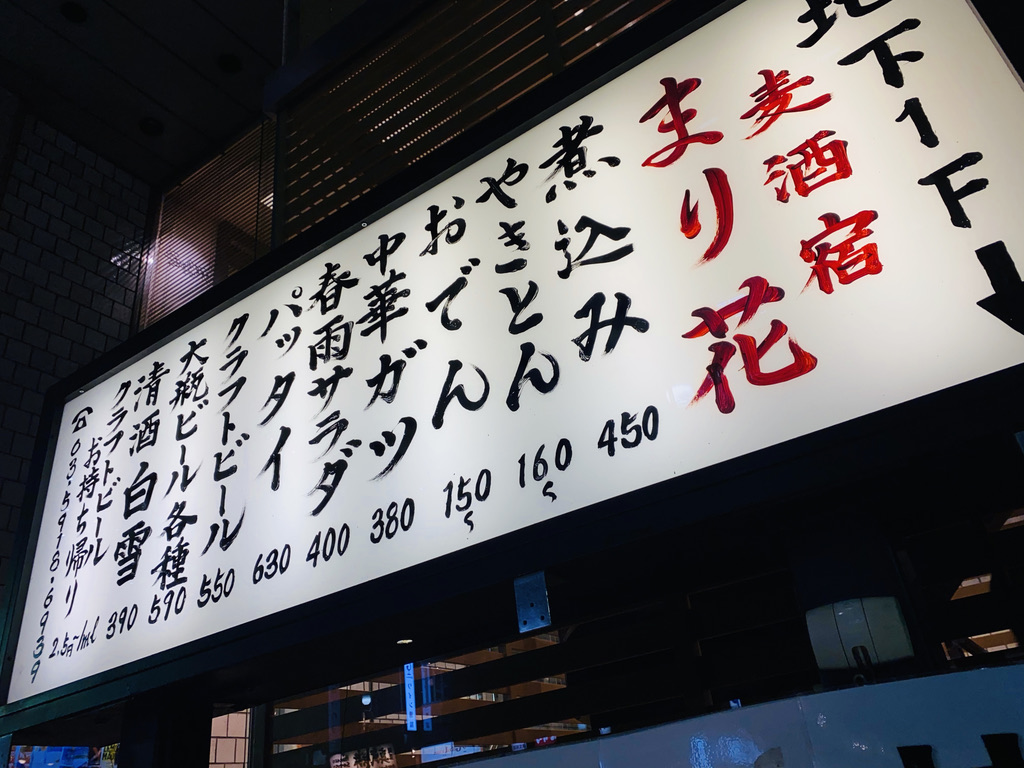 地下1F
麦酒宿
まり花
煮込み 450
やきとん 160〜
おでん 150〜
中華ガツ 380
春雨サラダ 400
パッタイ 630
クラフトビール 550
大瓶ビール各種 590
清酒 白雪 390
クラフトビール
お持ち帰り 2.5円〜/ml
☎03.5916.6939